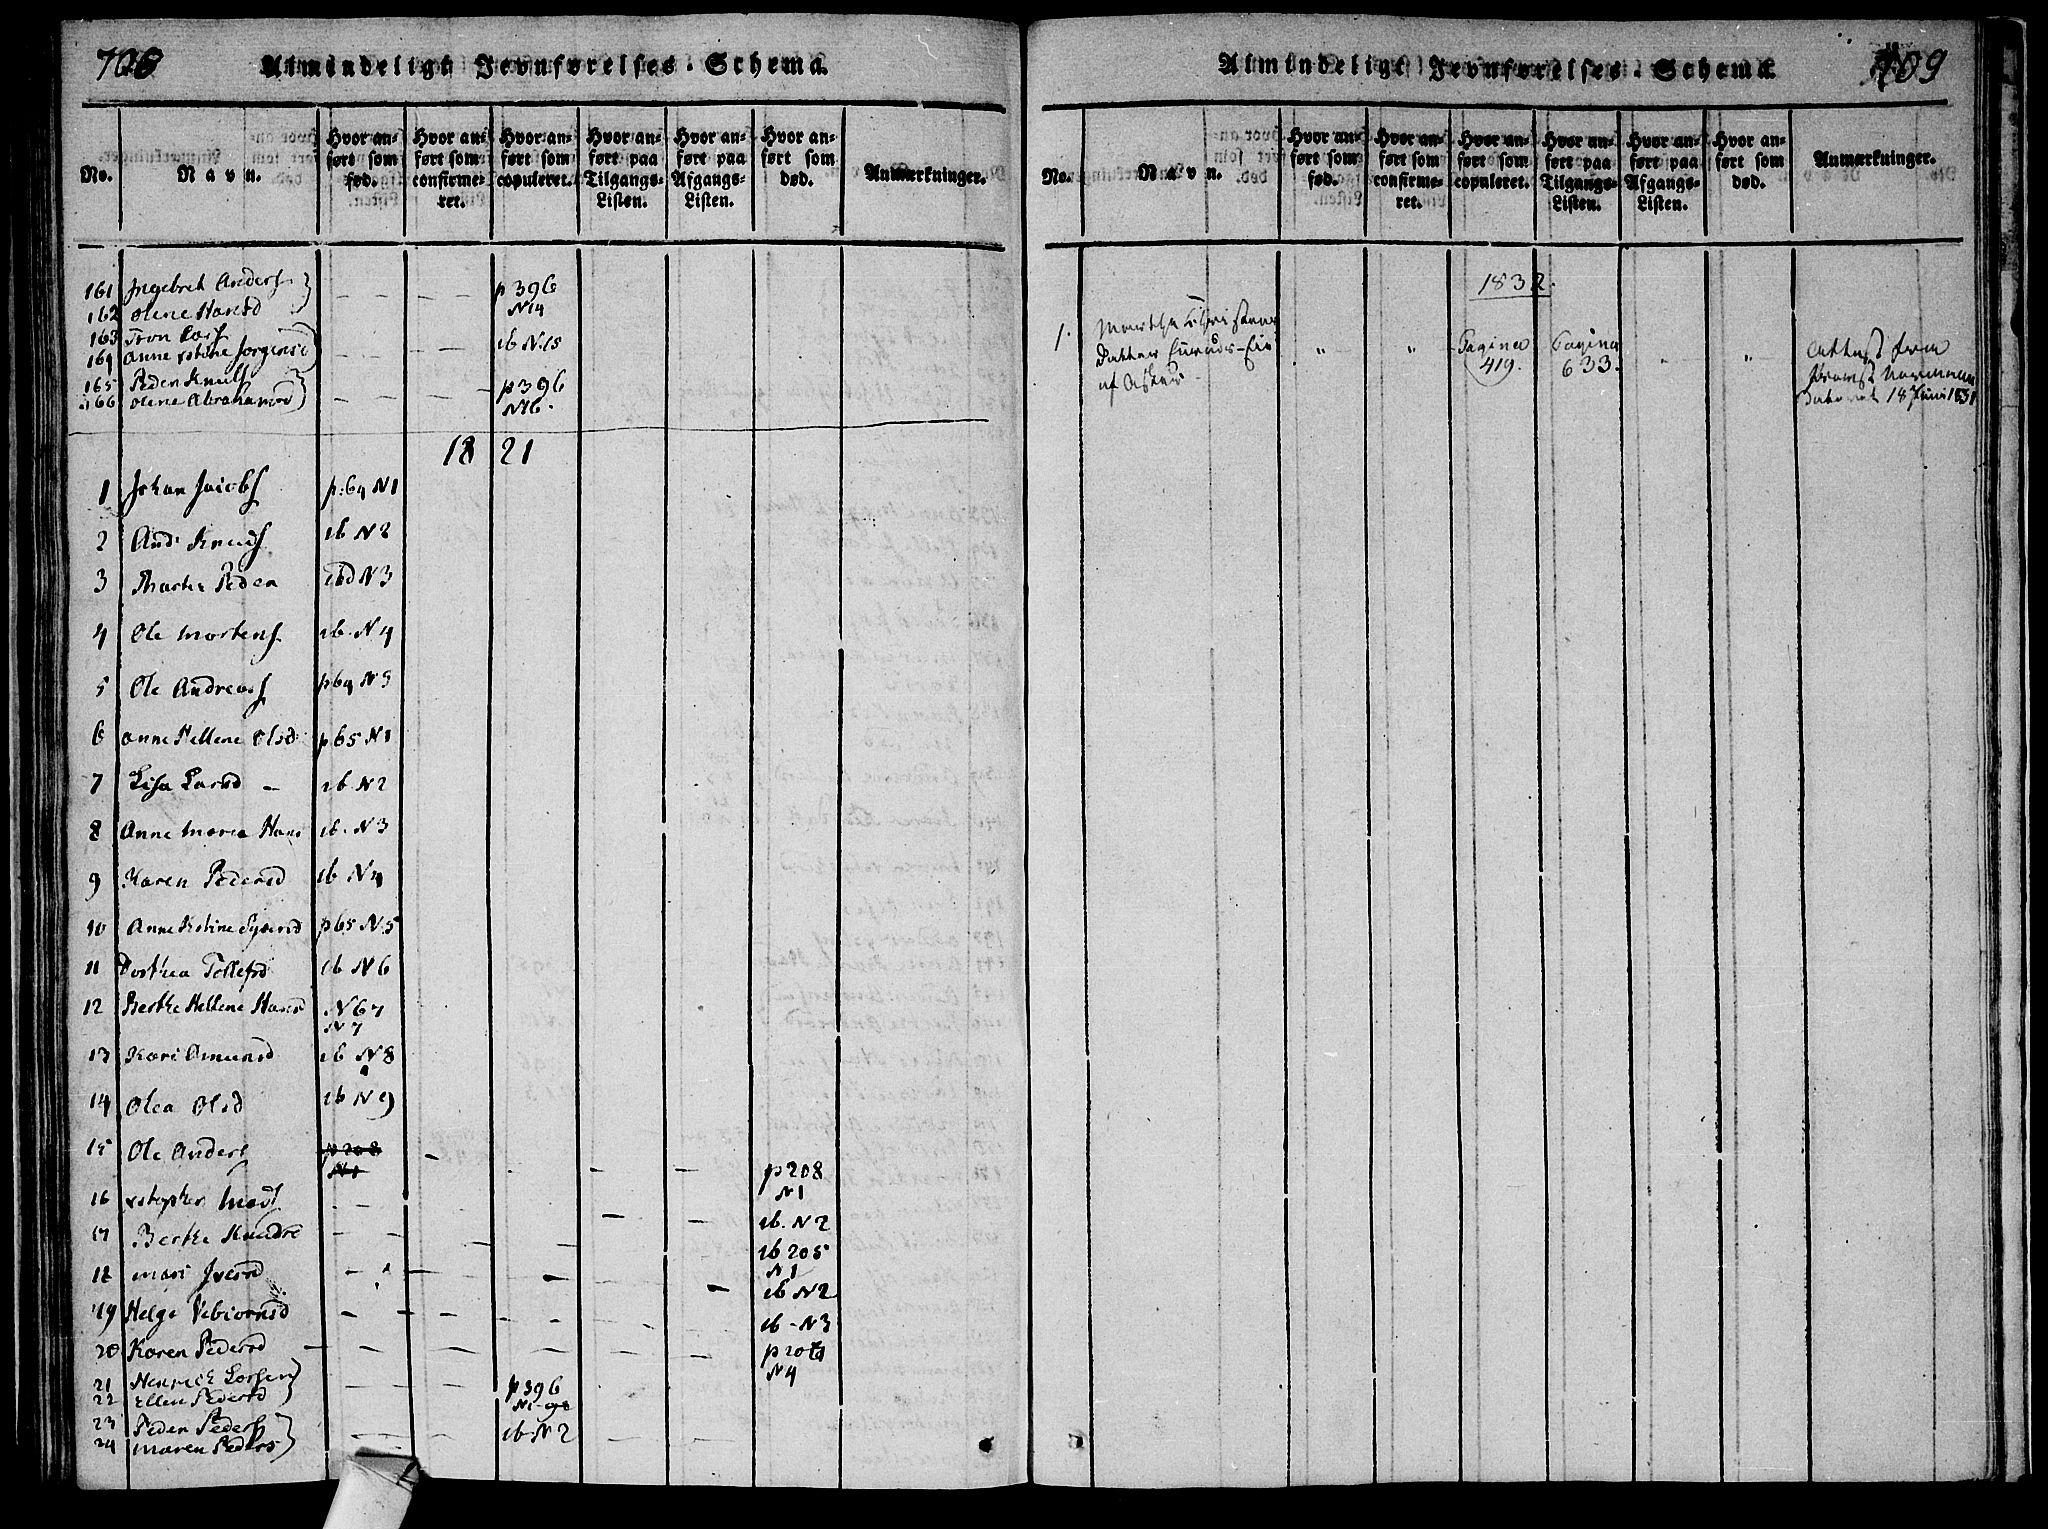 708
Almindeligt Jevnførelses-Schema.
No.
Navn.
Hvor anført som fød.
Hvor anført som confirmeret.
Hvor anført som copuleret.
Hvor anført paa Tilgangs-Listen.
Hvor anført paa Afgangs-Listen.
Hvor anført som død.
Anmærkninger.
161 Ingebret Anders
162 Olene Hansd p 396 N14
163 Tron Lars
164 Anne Stine Jorgensd ib N.15
165 Peder Knuds
166 Olene Abrahamsd p 396 N16.
1821
1 Johan Jacobs p: 64 N1
2 And Knuds ib N2
3 Marte Peder ibd N3
4 Ole Mortens ib. N4
5 Ole Andreas p 64 N5
6 Anne Hellene Olsd p 65 N1
7 Lisa Larsd – ib N2
8 Anne Maria Hans ib. N3
9 Karen Pedersd ib N4
10 Anne Kstine Syversd p 65 N.5
11 Dorthea Tollefsd ib N6
12 Berthe Hellene Hansd N67 N7
13 Kari Amundsd ib N8
14 Olea Olsd ib N9
15 Ole Anders p 208 N1 p 208 N1
16 Mads ib. N2
17 Berthe ib 205 N1
18 Mari Iversd ib N2
19 Helge ib – N3
20 Karen Pedersd N4
21 Henrich Larsen
22 Ellen Pedersd p 396
23 Peder Peders
24 Maren Peders ib. N2
Almindeligt Jevnførelses-Schema.
709
No.
Navn.
Hvor anført som fød.
Hvor anført som confirmeret.
Hvor anført som copuleret.
Hvor anført paa Tilgangs-Listen.
Hvor anført paa Afgangs-Listen.
Hvor anført som død.
Anmærkninger.
1832.
1. Martha Christens " " Pagina Pagina " " Attest fra
Datter 419. 633. Provst
af Asker 18 Juni 1831